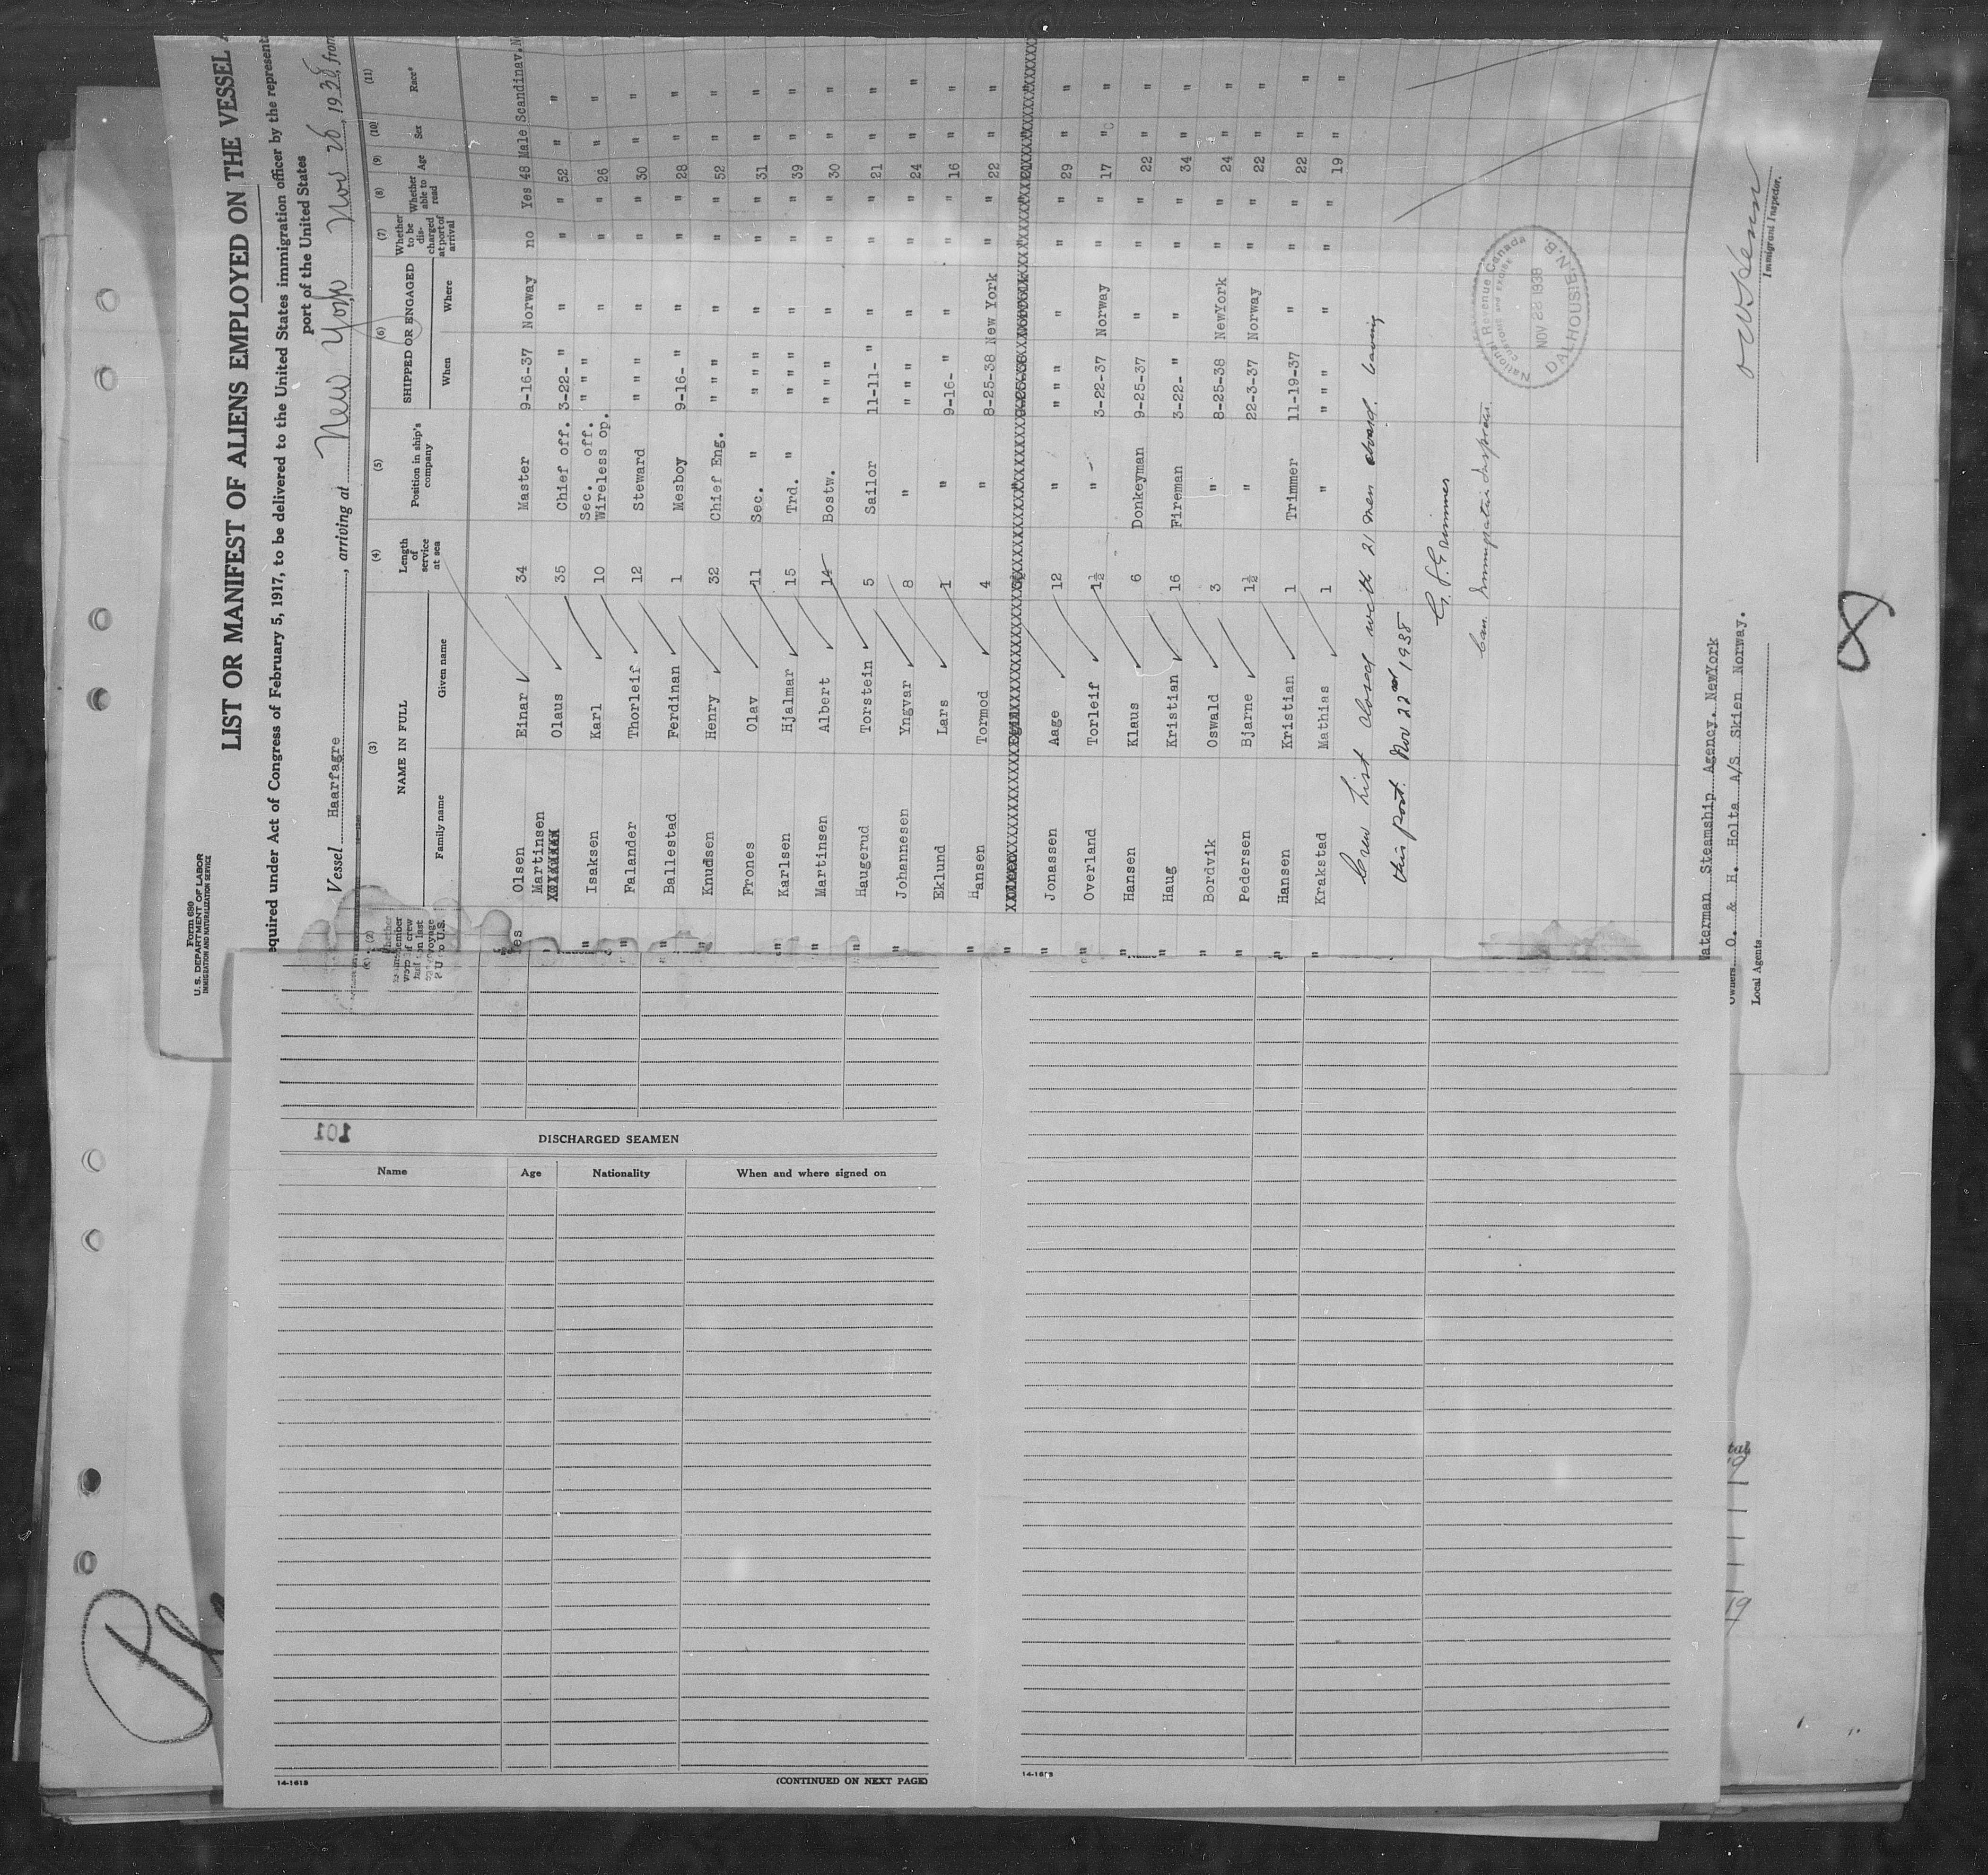 Form 680
U. S. DEPARTMENT OF LABOR
IMMIGRATION AND NATURALIZATION SERVICE
LIST OR MANIFEST OF ALIENS EMPLOYED ON THE VESSEL
equired under Act of Congress of February 5, 1917, to be delivered to the United States immigration officer by the represent
port of the United States
Vessel Haarfagre, arriving at New York Nov 28, 1938, from
(2) (3) (4) (5) (6) (7) (8) (9) (10) (11)
Whether member of crew on last voyage to U.S.
NAME IN FULL
Family name Given name
Length of service at sea
Position in ship's company
SHIPPED OR ENGAGED
When Where
Whether to be discharged at port of arrival
Whether able to read
Age Sex Race*
Olsen Einar 34 Master 9-16-37 Norway no Yes 48 Male Scandinav.
Martinsen Olaus 35 Chief off. 3-22- " " " " 52 " "
Isaksen Karl 10 Sec. off. Wireless op. " " " " " " 26 " "
Falander Thorleif 12 Steward " " " " " " 30 " "
" Ballestad Ferdinan 1 Mesboy 9-16- " " " " 28 " "
" Knudsen Henry 32 Chief Eng. " " " " " " 52 " "
Frones Olav 11 Sec. " " " " " " " 31 " "
" Karlsen Hjalmar 15 Trd. " " " " " " " 39 " "
" Martinsen Albert 14 Bostw. " " " " " " 30 " "
" Haugerud Torstein 5 Sailor 11-11- " " " " 21 " "
" Johannesen Yngvar 8 " " " " " " " 24 " "
" Eklund Lars 1 " 9-16- " " " " 16 " "
" Hansen Tormod 4 " 8-25-38 New York " " 22 " "
" Jonassen Aage 12 " " " " " " 29 " "
" Overland Torleif 1½ " 3-22-37 Norway " " 17 " "
" Hansen Klaus 6 Donkeyman 9-25-37 " " " 22 " "
" Haug Kristian 16 Fireman 3-22- " " " " 34 " "
" Bordvik Oswald 3 " 8-25-38 NewYork " " 24 " "
" Pedersen Bjarne 1½ " 22-3-37 Norway " " 22 " "
" Hansen Kristian 1 Trimmer 11-19-37 " " " 22 " "
" Krakstad Mathias 1 " " " " " " " 19 " "
Crew List closed with 21 men aboard. leaving
this port. Nov 22nd 1938
G. S. Grimmer
Can. Immigration Inspector.
National Revenue Canada
CUSTOMS and EXCISE
NOV 22 1938
DALHOUSIE, N.B.
Immigrant Inspector.
Waterman Steamship Agency. NewYork
Owners O. & H. Holta A/S Skien Norway.
Local Agents
101
DISCHARGED SEAMEN
Name Age Nationality When and where signed on
14-1613
(CONTINUED ON NEXT PAGE)
14-1613
19